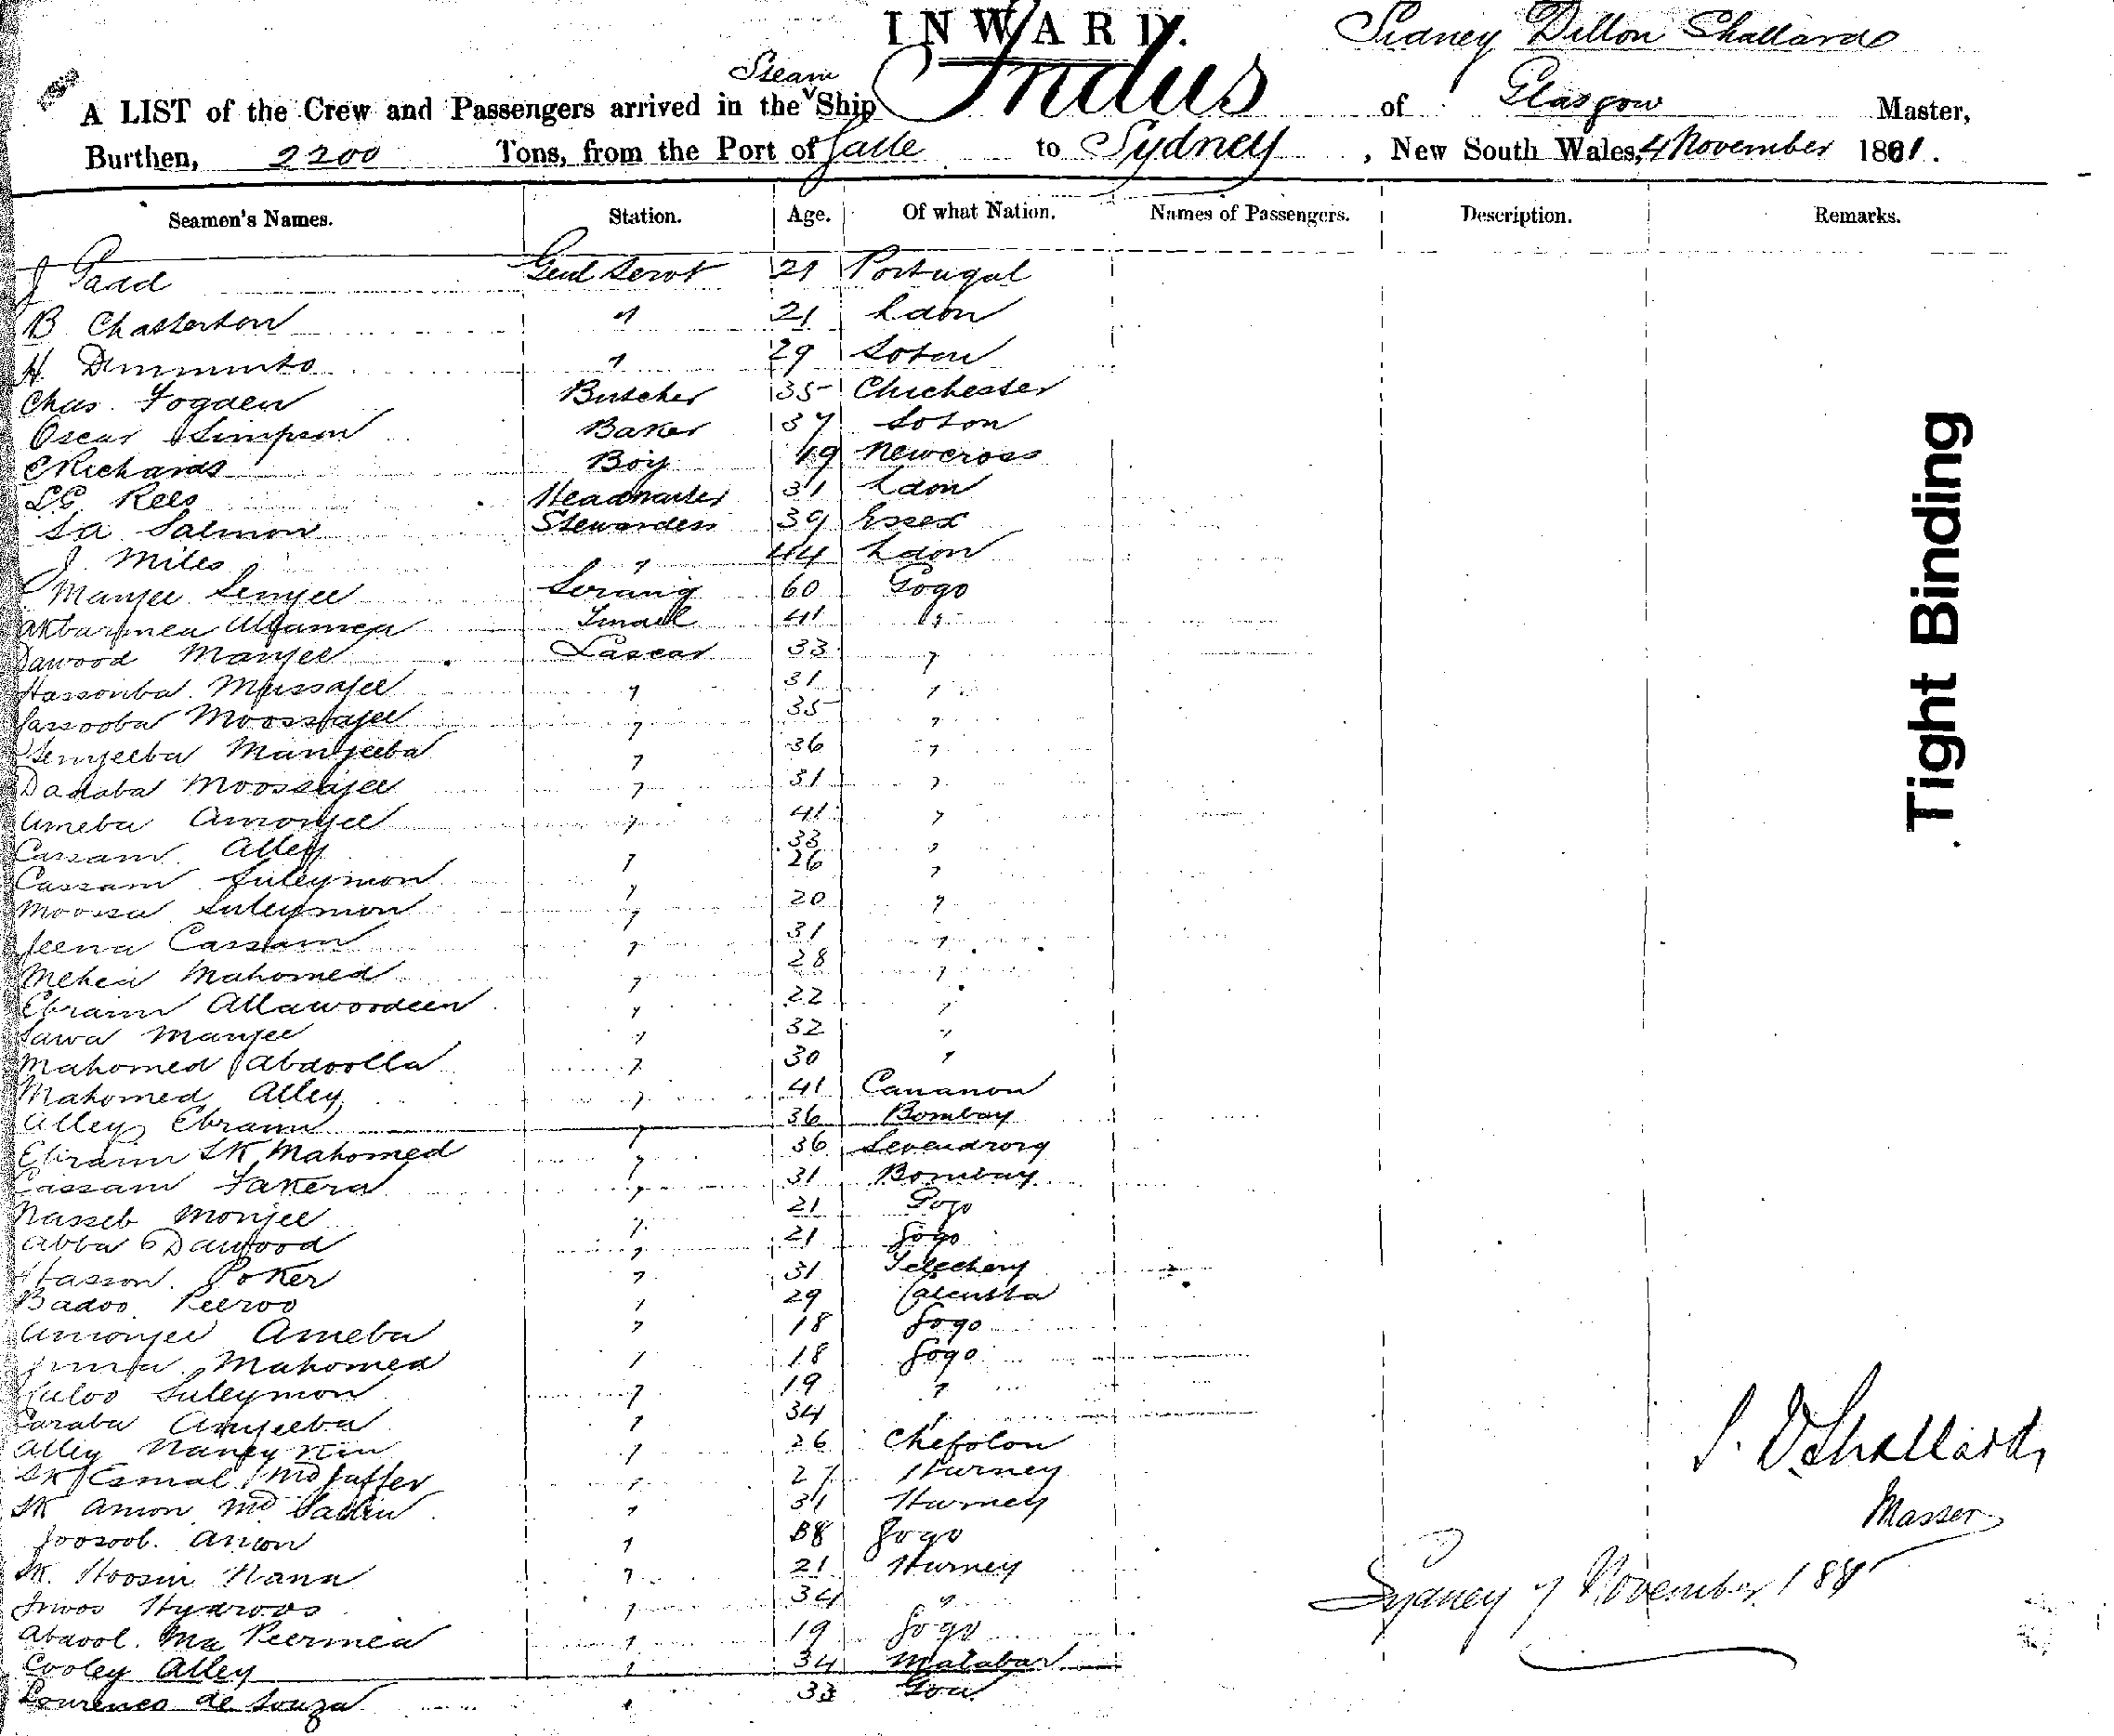 INWARD.
Sidney Dillon Shallard
A LIST of the Crew and Passengers arrived in the Steam Ship Indus of Glasgow Master,
Burthen, 2200 Tons, from the Port of Galle to Sydney, New South Wales, 4 November 1881.
Seamen's Names. Station. Age. Of what Nation. Names of Passengers. Description. Remarks.
J Gadd Genl Servt 21 Portugal
B Chatterton " 21 Ldon
H " 29 Soton
Chas. Fogden Butcher 35 Chichester
Oscar Simpson Baker 37 Soton
C Richards Boy 19 Newcross
Rees 31 Ldon
Sa Salmon Stewardess 39 Essex
J. Miles " 44 Ldon
Manjee Semjee Serang 60 Gogo
Akbarmea Tindal 41 "
Dawood Manjee Lascar 33 "
Hassonba Mussajee " 31 "
Moossajee " 35 "
Semjeeba Manjeeba " 36 "
Dadaba Moossajee " 31 "
Ameba Amonjee " 41 "
Cassam Alley " 33 "
Cassam Suleymon " 26 "
Moossa Suleymon " 20 "
Jeena Cassam " 31 "
Mahomed " 28 "
Ebraim Allawoodeen " 22 "
Sawa Manjee " 32 "
Mahomed Abdoolla " 30 "
Mahomed Alley " 41 Cananon
Alley Ebraim " 36 Bombay
Ebraim SK Mahomed " 36
Cassam Fakera " 31 Bombay
Nasseb Monjee " 21 Gogo
Abba Dawood " 21 Gogo
Hasson Poker " 31 Telechery
Badoo Peeroo " 29 Calcutta
Amonjee Ameba " 18 Gogo
Mahomed " 18 Gogo
Suleymon " 19 "
Amjeeba " 34 "
Alley " 26
SK Esmal Md Jaffer " 27 Hurney
SK Amon Md " 31 Hurney
Joosoob Amon " 38 Gogo
SK. Hoosin " 21 Hurney
Hydroos " 34 "
Abdool Peermea " 19 Gogo
Cooley Alley " 34 Malabar
Lourenco de Souza " 33 Goa
Tight Binding
S. D. Shallard,
Master
Sydney 7 November 1881